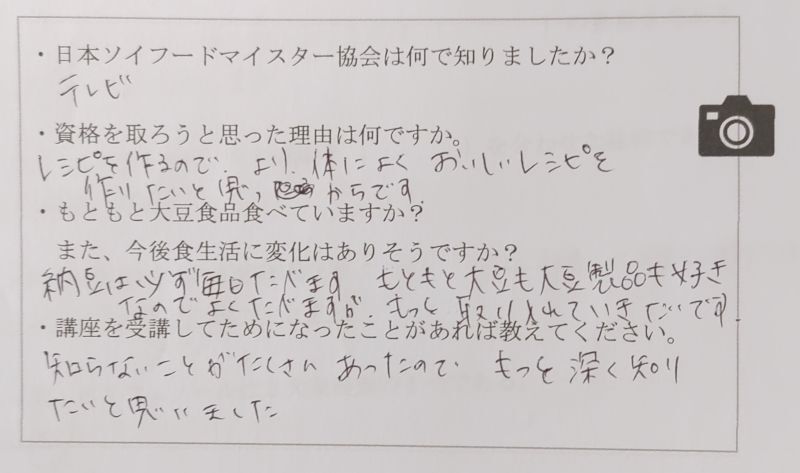 ・日本ソイフードマイスター協会は何で知りましたか？
テレビ
・資格を取ろうと思った理由は何ですか。
レシピを作るので、より、体によく おいしいレシピを
作りたいと思ったからです。
・もともと大豆食品食べていますか？
また、今後食生活に変化はありそうですか？
納豆は必ず毎日たべます もともと大豆も大豆製品も好き
なのでよくたべますが、もっと取り入れていきたいです。
・講座を受講してためになったことがあれば教えてください。
知らないことがたくさん あったので もっと深く知り
たいと思いました